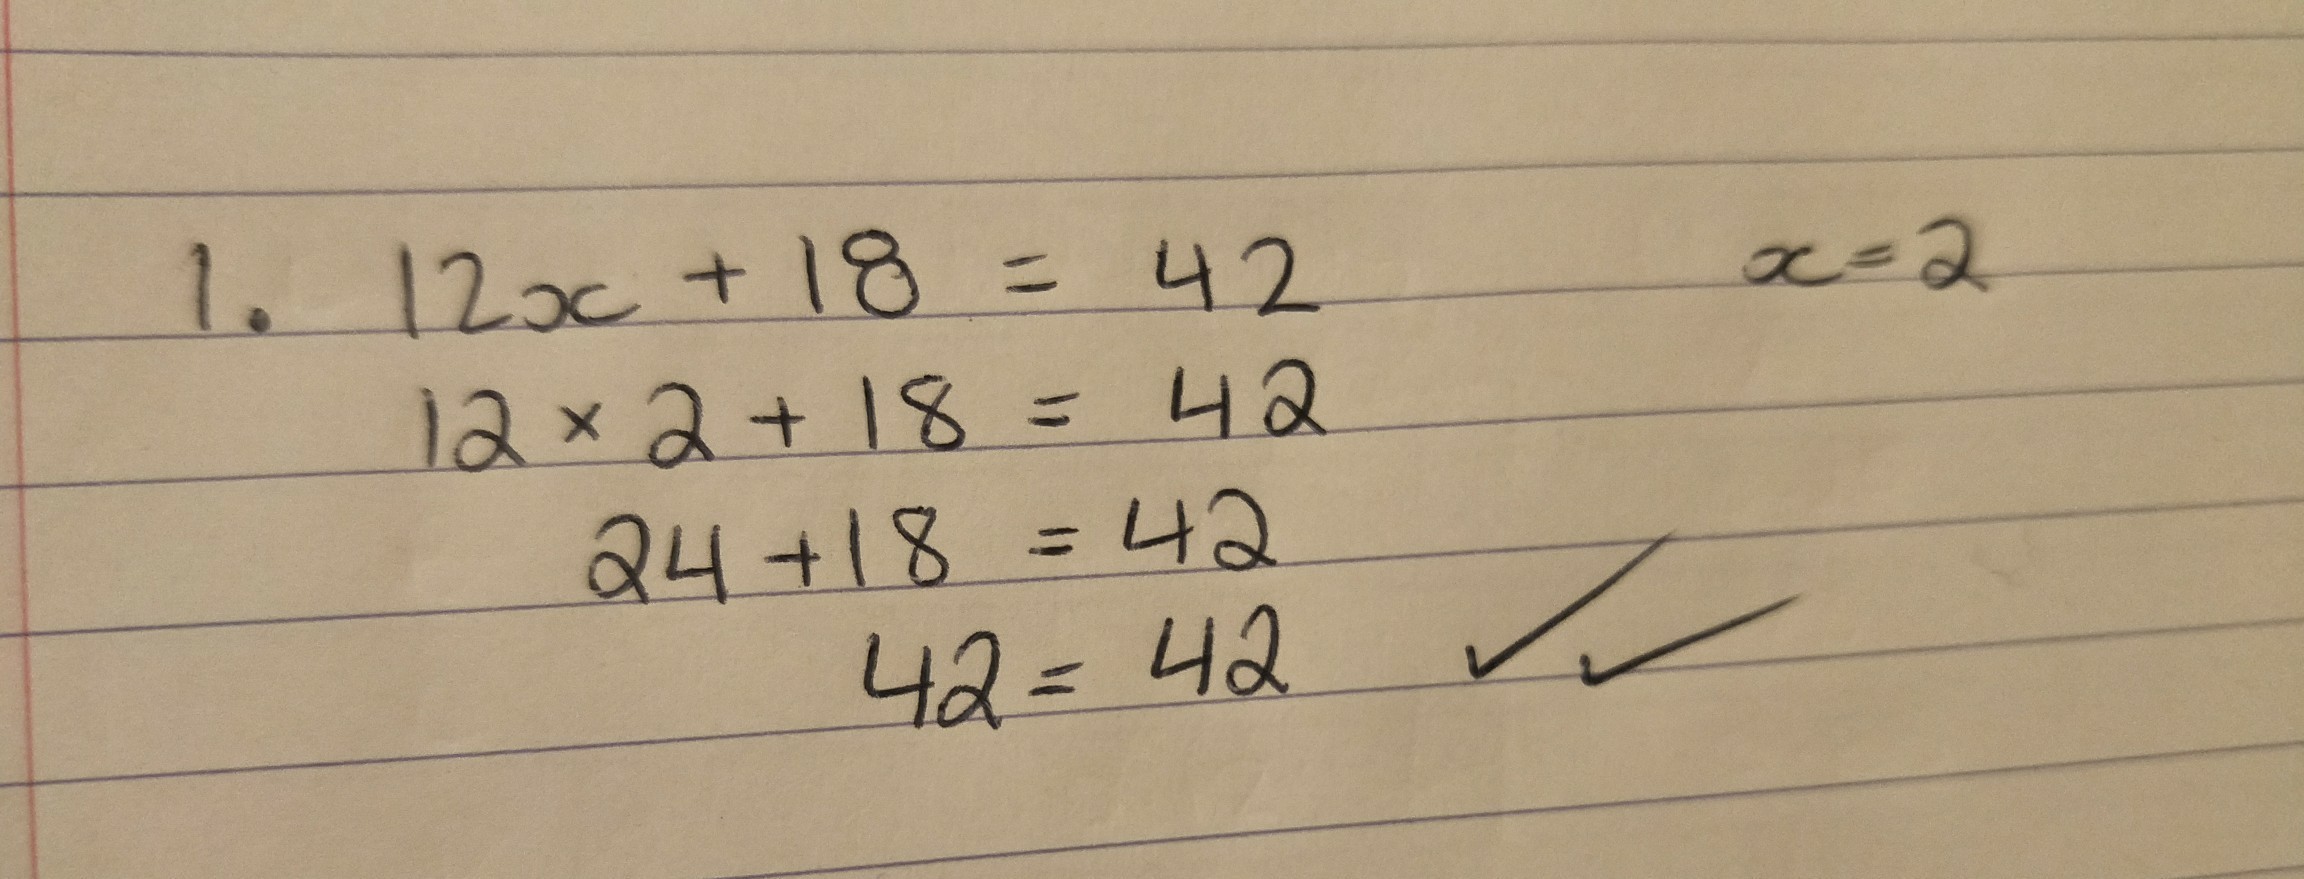 1. 12x + 18 = 42 x = 2
12 × 2 + 18 = 42
24 + 18 = 42
42 = 42 ✓✓